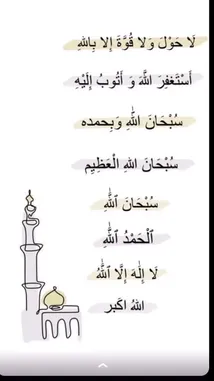 لَا حَوْلَ وَلَا قُوَّةَ إِلا بِاللهِ
أَسْتَغفِرَ اللَّهَ وَ أَتُوبُ إِلَيْهِ
سُبْحَانَ اللَّٰهِ وَبِحمده
سُبْحَانَ اللهِ الْعَظِيمِ
سُبْحَانَ ٱللَّٰهِ
ٱلْحَمْدُ اللَّٰهِ
لَا إِلَٰهَ إِلَّا ٱللَّٰهُ
اللهُ اكَبر